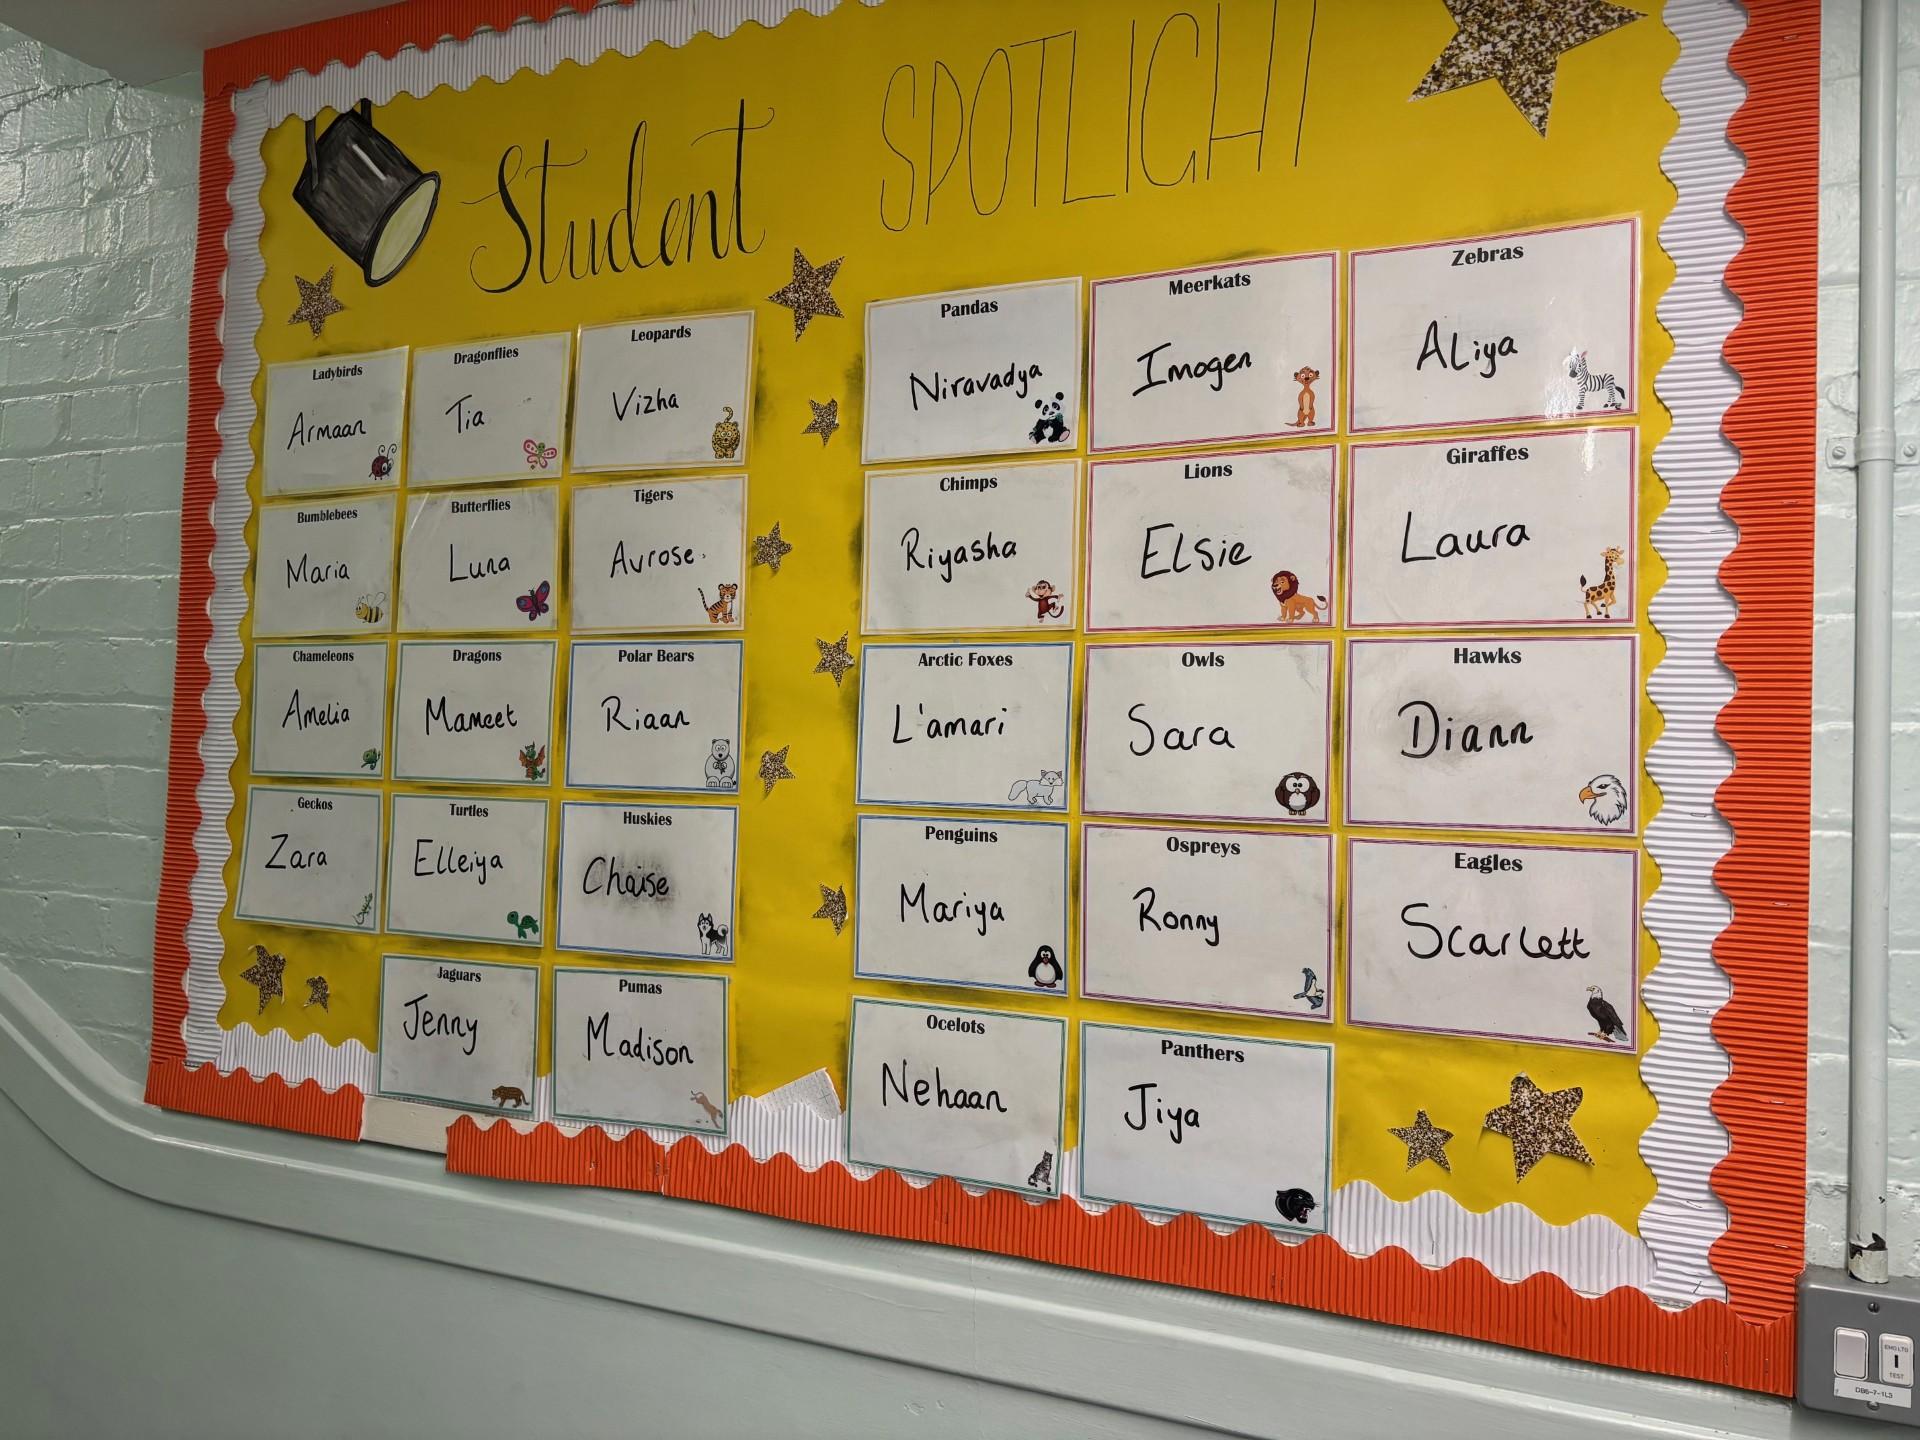 Student SPOTLIGHT
Ladybirds
Armaan
Dragonflies
Tia
Leopards
Vizha
Pandas
Niravadya
Meerkats
Imogen
Zebras
Aliya
Bumblebees
Maria
Butterflies
Luna
Tigers
Avrose.
Chimps
Riyasha
Lions
Elsie
Giraffes
Laura
Chameleons
Amelia
Dragons
Mameet
Polar Bears
Riaan
Arctic Foxes
L'amari
Owls
Sara
Hawks
Diann
Geckos
Zara
Turtles
Elleiya
Huskies
Chaise
Penguins
Mariya
Ospreys
Ronny
Eagles
Scarlett
Jaguars
Jenny
Pumas
Madison
Ocelots
Nehaan
Panthers
Jiya
EMG LTG
TEST
DB6-7-1L3